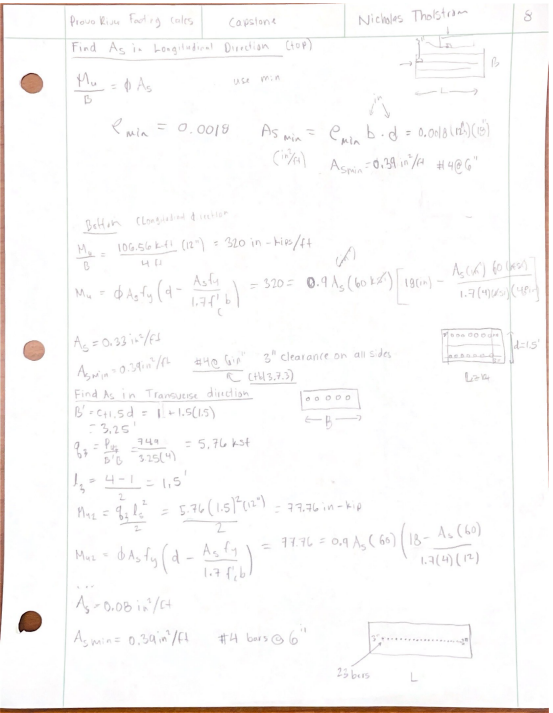 Provo River Footing Calcs Capstone Nicholas Tholstrom 8
Find As in Longitudinal Direction (top)
B
L
Mu/B = φ As use min
in
ρmin = 0.0018 As min = ρmin b · d = 0.0018(12")(18")
(in²/ft) Asmin = 0.39 in²/ft #4@6"
Bottom (longitudinal direction
Mu/B = 106.56 k-ft/4 ft (12") = 320 in-kips/ft
Mu = φ As fy (d - As fy/1.7 f'c b) = 320 = 0.9 As (60 ksi) [18(in) -
As = 0.33 in²/ft
d=1.5'
Asmin = 0.39 in²/ft #4@ 6in" 3" clearance on all sides
(tbl 3.7.3)
Find As in Transverse direction
B' = c+1.5d = 1 + 1.5(1.5)
= 3.25'
B
= 749/3.25(4) = 5.76 ksf
= 4-1/2 = 1.5'
Muz = = 5.76(1.5)²(12")/2 = 77.76 in-kip
Muz = φ As fy (d - As fy/1.7 f'c b) = 77.76 = 0.9 As (60) (18 - As (60)/1.7(4)(12)
...
As = 0.08 in²/ft
As min = 0.39 in²/ft #4 bars @ 6"
3"
23 bars
L